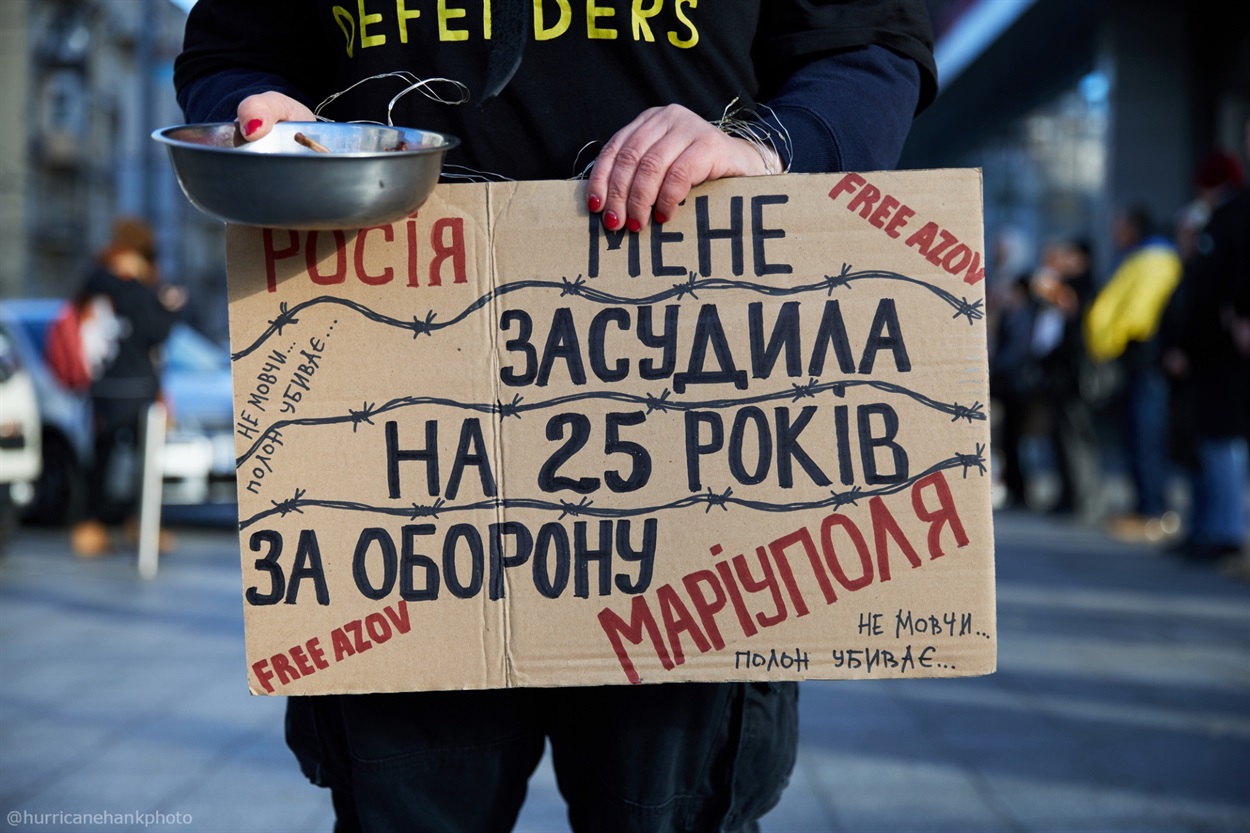 DEFENDERS
FREE AZOV
РОСІЯ МЕНЕ
ЗАСУДИЛА
НЕ МОВЧИ...
ПОЛОН УБИВАЄ...
НА 25 РОКІВ
ЗА ОБОРОНУ
МАРІУПОЛЯ
FREE AZOV
НЕ МОВЧИ...
ПОЛОН УБИВАЄ...
@hurricanehankphoto